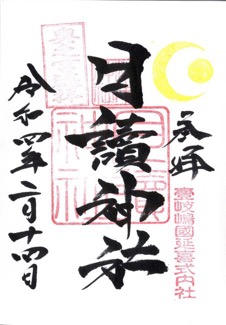 奉拝
壹岐嶋國延喜式内社
月讀神社
令和四年二月十四日